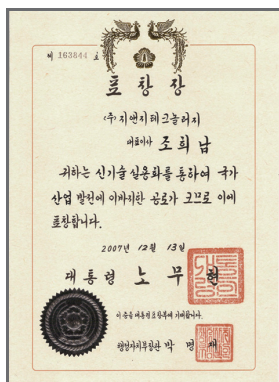 제 163844 호
표창장
(주)지앤지테크놀러지
대표이사 조희남
귀하는 신기술 실용화를 통하여 국가
산업 발전에 이바지한 공로가 크므로 이에
표창합니다.
2007년 12월 13일
대통령 노무현
이 증을 대통령표창부에 기재합니다.
행정자치부장관 박명재